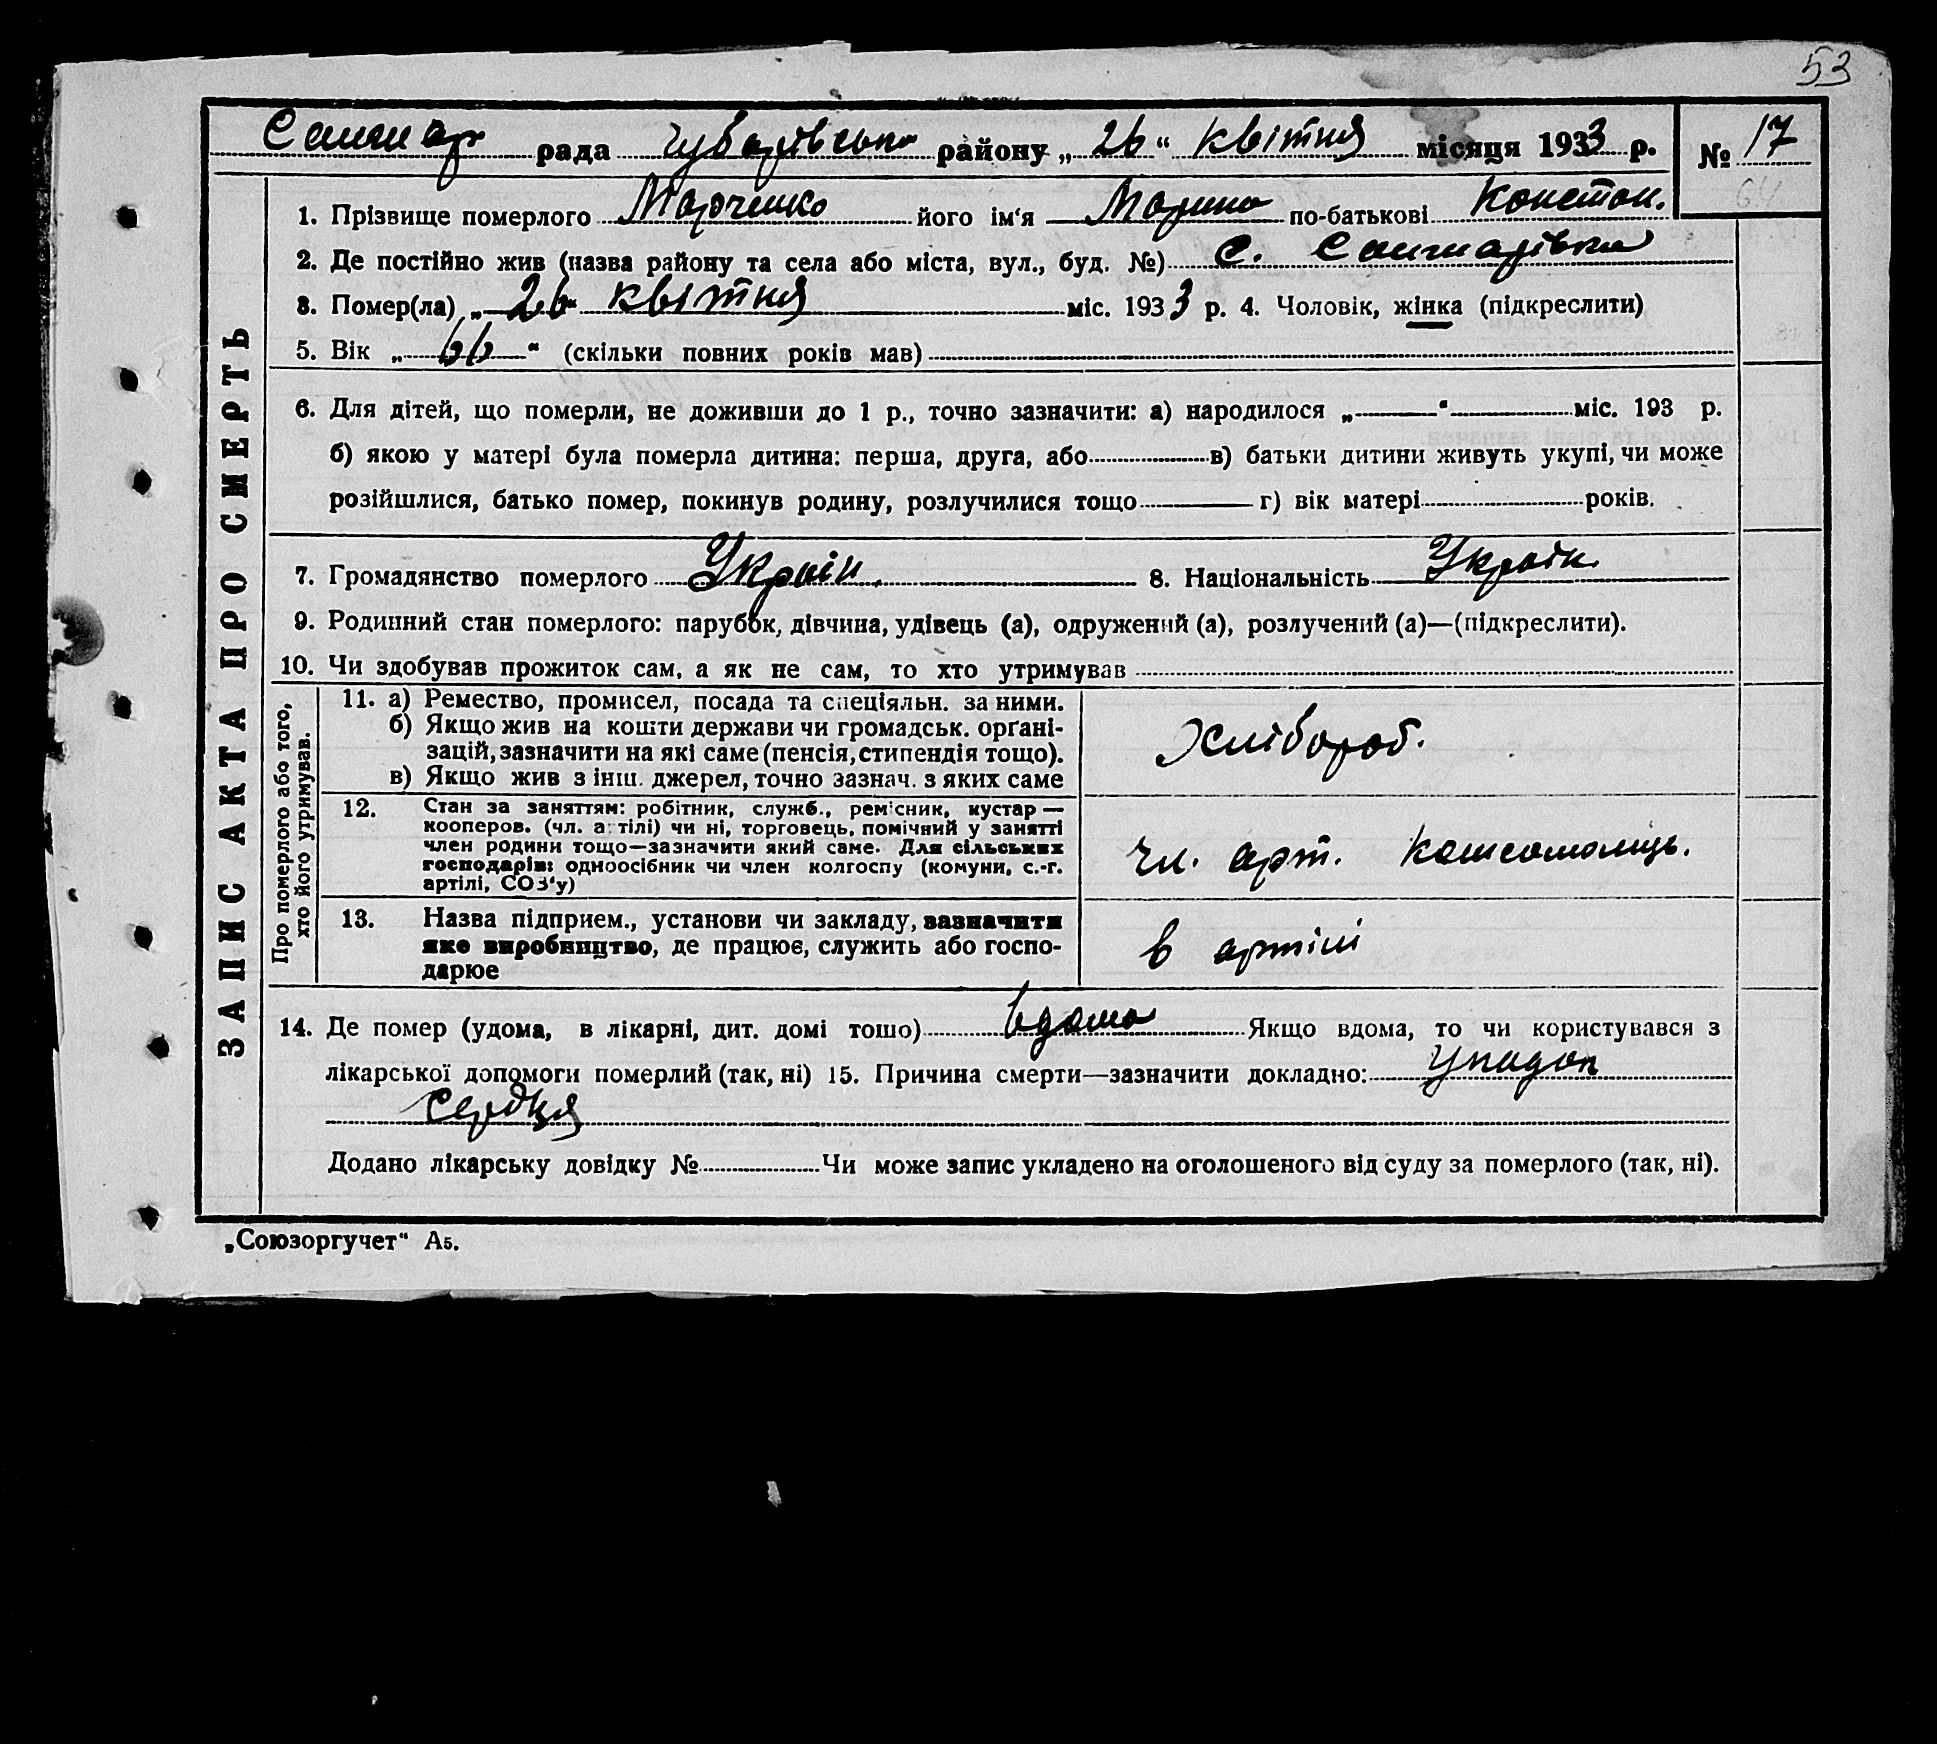 53
Санжар рада Чубарівсько району „ 26 “ квітня місяця 1933 р. № 17
64
1. Прізвище померлого Марченко його ім‘я Марина по-батькові Констан.
2. Де постійно жив (назва району та села або міста, вул., буд. №) с. Санжарівка
3. Помер(ла) „ 26 “ квітня міс. 1933 р. 4. Чоловік, жінка (підкреслити)
5. Вік „ 66 “ (скільки повних років мав)
6. Для дітей, що померли, не доживши до 1 р., точно зазначити: а) народилося „ “ міс. 193 р.
б) якою у матері була померла дитина: перша, друга, або в) батьки дитини живуть укупі, чи може
розійшлися, батько помер, покинув родину, розлучилися тощо г) вік матері років.
7. Громадянство померлого Україн. 8. Національність Україн.
9. Родинний стан померлого: парубок, дівчина, удівець (а), одружений (а), розлучений (а)—(підкреслити).
10. Чи здобував прожиток сам, а як не сам, то хто утримував
ЗАПИС АКТА ПРО СМЕРТЬ
Про померлого або того,
хто його утримував.
11. а) Ремество, промисел, посада та спеціяльн. за ними.
б) Якщо жив на кошти держави чи громадськ. орґані-
зацій, зазначити на які саме (пенсія, стипендія тощо).
в) Якщо жив з інш. джерел, точно зазнач. з яких саме
Хлібороб.
12. Стан за заняттям: робітник, служб., ремісник, кустар —
кооперов. (чл. артілі) чи ні, торговець, помічний у занятті
член родини тощо—зазначити який саме. Для сільських
господарів: одноосібник чи член колгоспу (комуни, с.-г.
артілі, СОЗ‘у)
чл. арт. комсомолець.
13. Назва підприєм., установи чи закладу, зазначити
яке виробництво, де працює, служить або госпо-
дарює
в артілі
14. Де помер (удома, в лікарні, дит. домі тошо) вдома Якщо вдома, то чи користувався з
лікарської допомоги померлий (так, ні) 15. Причина смерти—зазначити докладно: Упадок
сердця
Додано лікарську довідку № Чи може запис укладено на оголошеного від суду за померлого (так, ні).
„Союзоргучет“ А5.